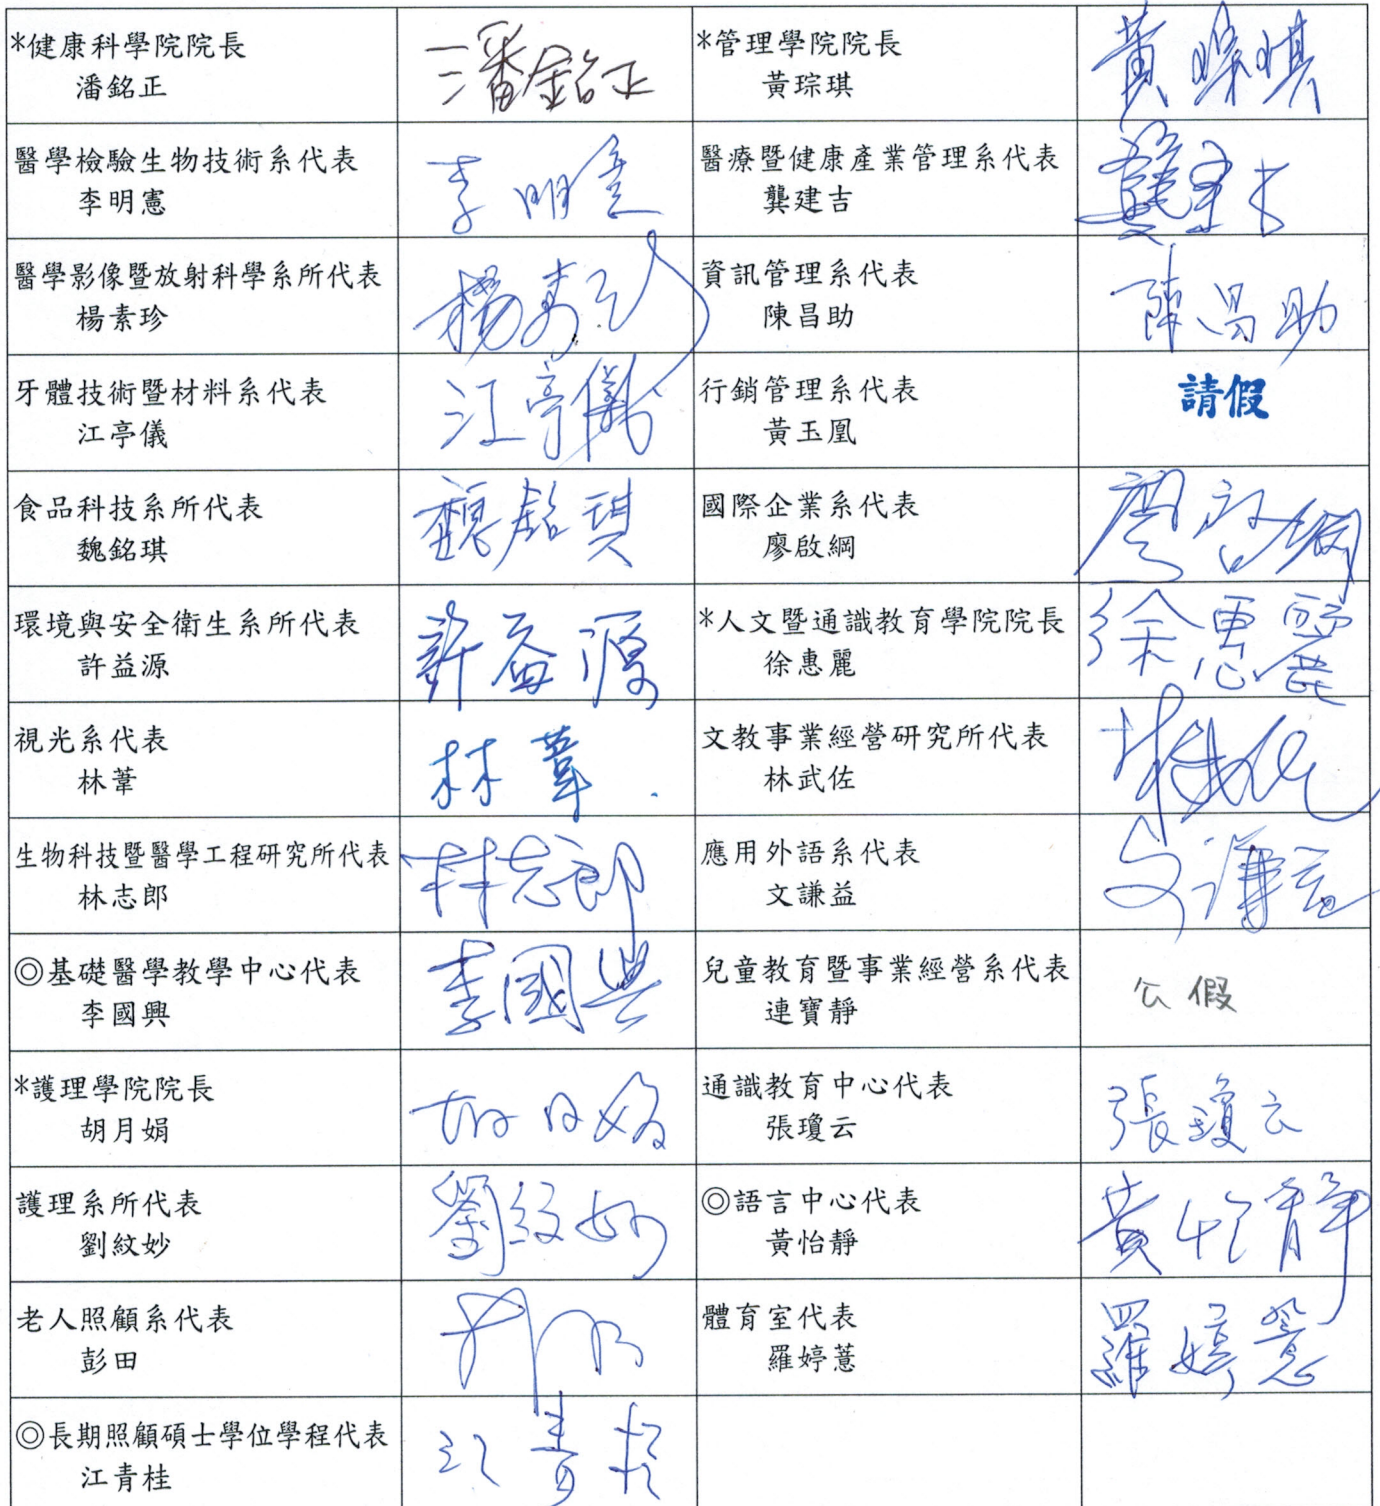 *健康科學院院長
潘銘正
潘銘正
*管理學院院長
黃琮琪
黃琮琪
醫學檢驗生物技術系代表
李明憲
李明憲
醫療暨健康產業管理系代表
龔建吉
龔建吉
醫學影像暨放射科學系所代表
楊素珍
楊素珍
資訊管理系代表
陳昌助
陳昌助
牙體技術暨材料系代表
江亭儀
江亭儀
行銷管理系代表
黃玉凰
請假
食品科技系所代表
魏銘琪
魏銘琪
國際企業系代表
廖啟綱
廖啟綱
環境與安全衛生系所代表
許益源
許益源
*人文暨通識教育學院院長
徐惠麗
徐惠麗
視光系代表
林葦
林葦
文教事業經營研究所代表
林武佐
林武佐
生物科技暨醫學工程研究所代表
林志郎
林志郎
應用外語系代表
文謙益
文謙益
◎基礎醫學教學中心代表
李國興
李國興
兒童教育暨事業經營系代表
連寶靜
公假
*護理學院院長
胡月娟
胡月娟
通識教育中心代表
張瓊云
張瓊云
護理系所代表
劉紋妙
劉紋妙
◎語言中心代表
黃怡靜
黃怡靜
老人照顧系代表
彭田
體育室代表
羅婷薏
羅婷薏
◎長期照顧碩士學位學程代表
江青桂
江青桂